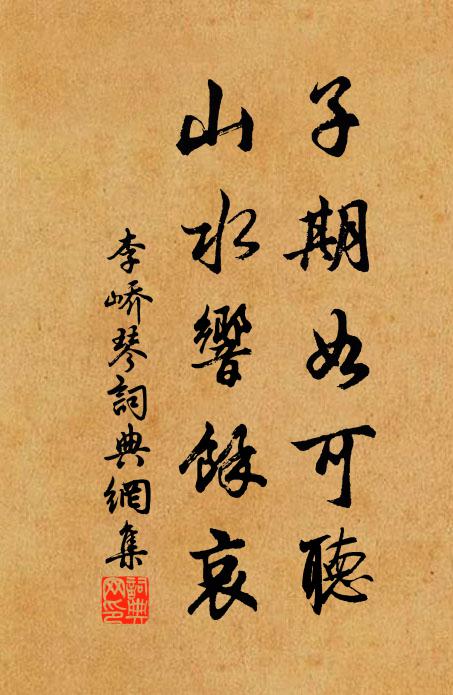 子期如可聽
山水響餘哀
李嶠琴詞典網集
詞典网印